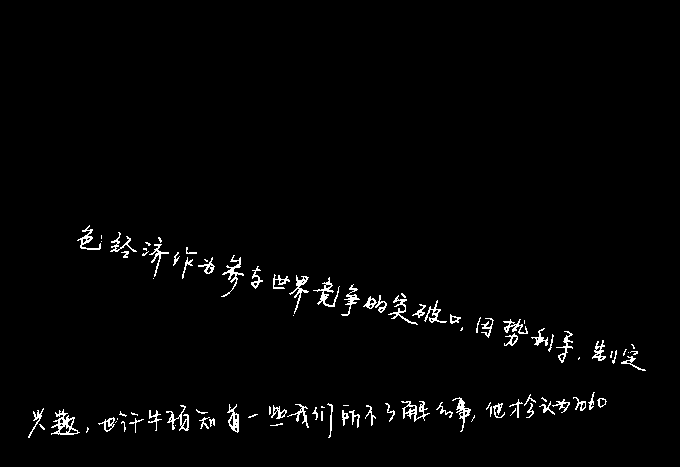 色经济作为参与世界竞争的突破口,因势利导,制定
兴趣,也许牛顿知道一些我们所不了解的事,他才会认为2060